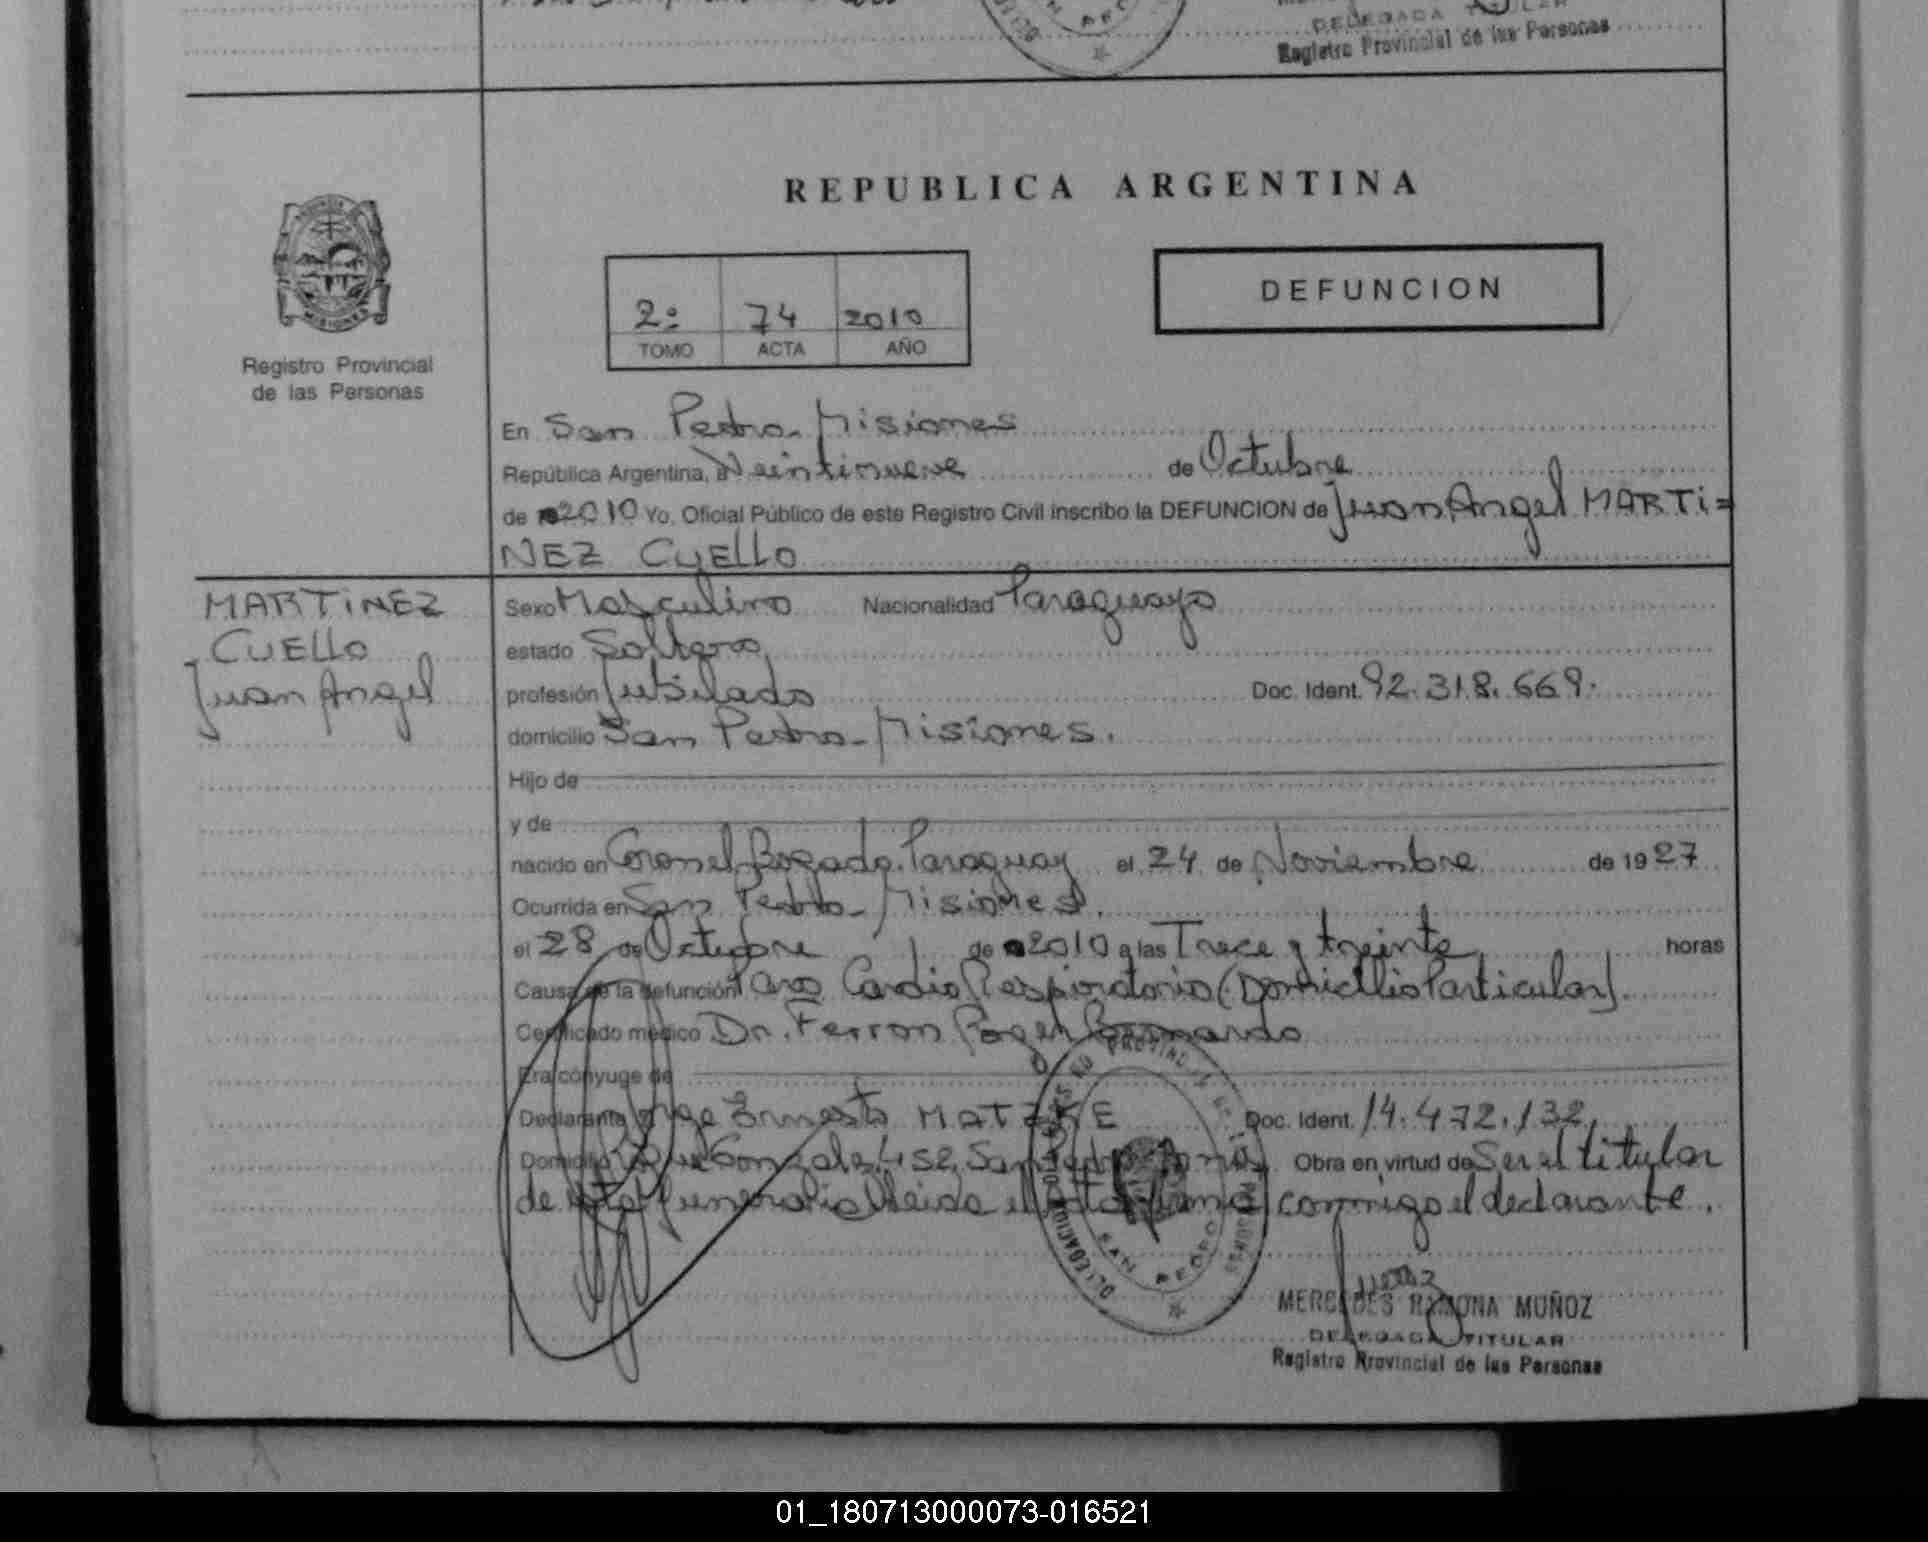 DELEGADA TITULAR
Registro Provincial de las Personas
REPUBLICA ARGENTINA
2º 74 2010
TOMO ACTA AÑO
DEFUNCION
MISIONES
Registro Provincial
de las Personas
En San Pedro - Misiones
República Argentina, a Veintinueve de Octubre
de 2010 Yo, Oficial Público de este Registro Civil inscribo la DEFUNCION de Juan Angel MARTi=
NEZ CUELLO
MARTiNEZ
CUELLO
Juan Angel
Sexo Masculino Nacionalidad Paraguayo
estado Soltero
profesión Jubilado Doc. Ident. 92.318.669.
domicilio San Pedro - Misiones.
Hijo de
y de
nacido en Coronel Bogado. Paraguay el 24 de Noviembre de 1927
Ocurrida en San Pedro - Misiones.
el 28 de Octubre de 2010 a las Trece y treinta horas
Causa de la defunción Paro Cardio Respiratorio (Domicilio Particular).
Certificado médico Dr. Ferron Roger Bernardo
Era cónyuge de
Declarante Jorge Ernesto MATZKE Doc. Ident. 14.472.132.
Domicilio Gonzales 452 San Pedro Obra en virtud de Ser el titular
de esta funeraria lleida el acta firma conmigo el declarante.
PROVINCIA DE MISIONES
SAN PEDRO
DELEGACION
MERCEDES RAMONA MUÑOZ
DELEGADA TITULAR
Registro Provincial de las Personas
01_180713000073-016521